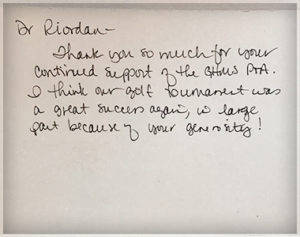 Dr Riordan-
Thank you so much for your
continued support of the GHMS PTA.
I think our golf tournament was
a great success again, in large
part because of your generosity!